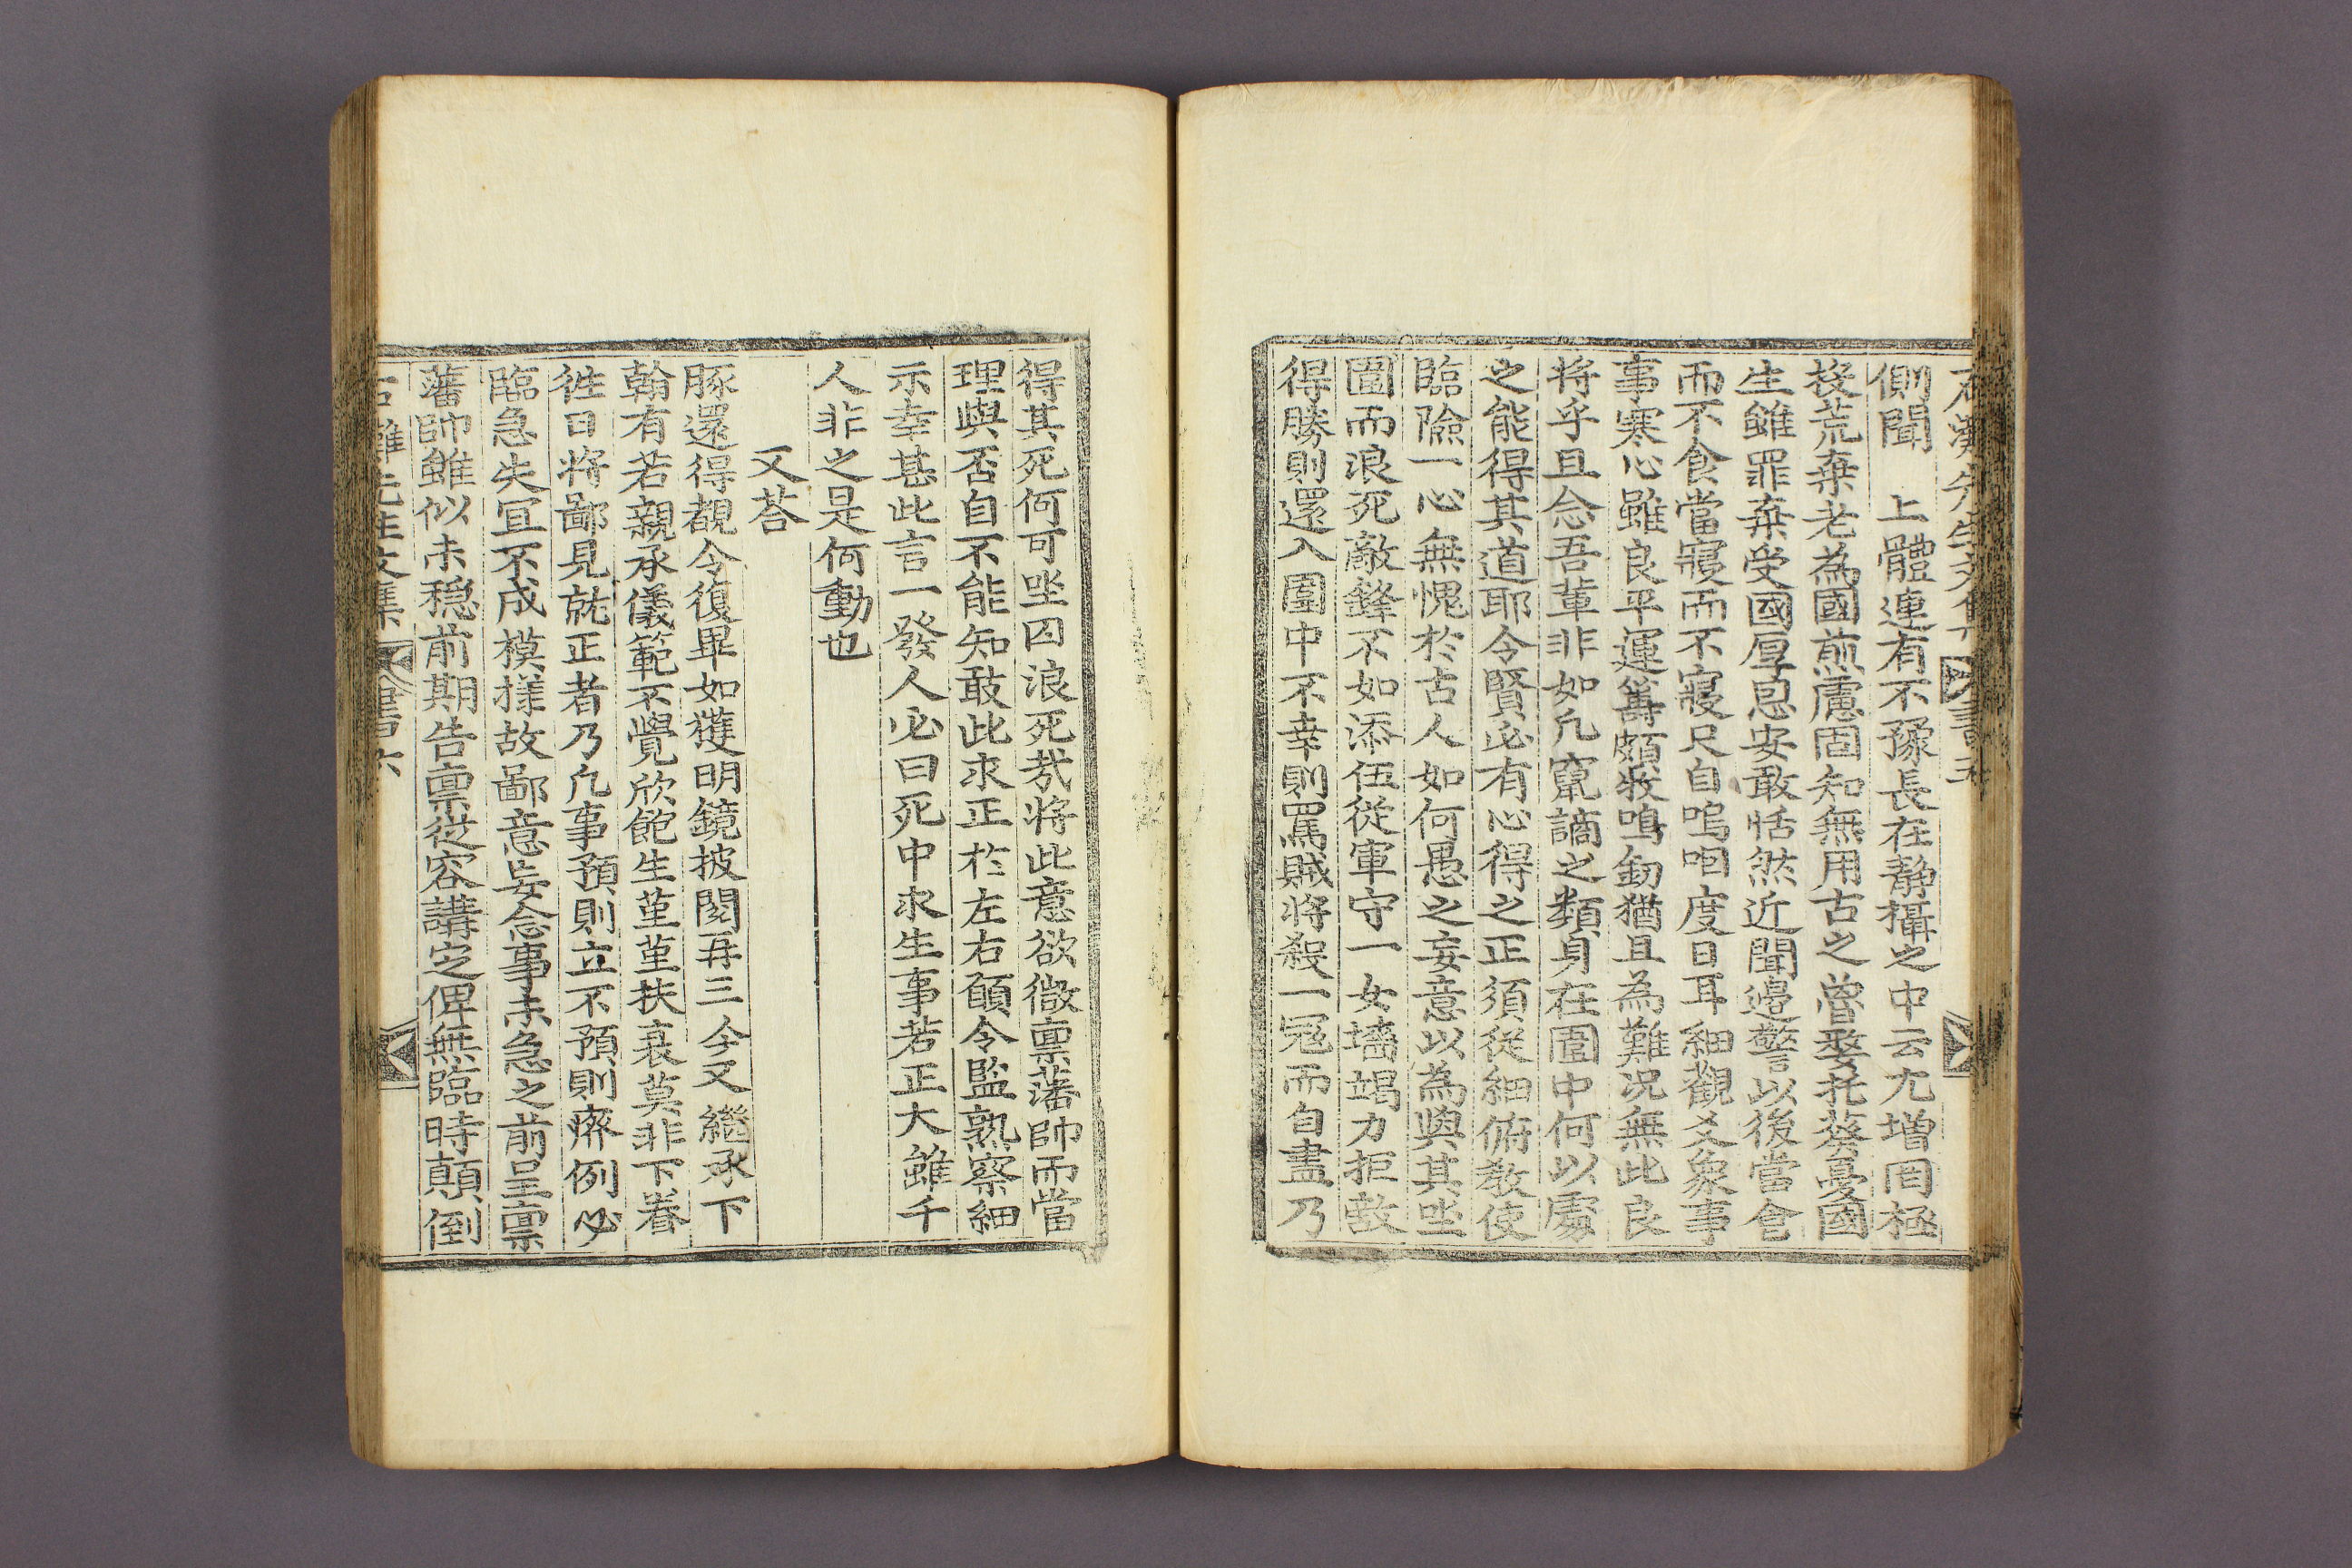 側聞　上體連有不豫長在靜攝之中云尤增罔極
投荒棄老為國煎慮固知無用古之曾嫠托葵憂國
生雖罪棄受國厚恩安敢恬然近聞邊警以後當食
而不食當寢而不寢尺自嗚咽度日耳細觀爻象事
事寒心雖良平運籌頗牧鳴釰猶且為難況無此良
将乎且念吾輩非如凡竄謫之類身在圍中何以處
之能得其道耶令賢必有心得之正須從細俯教使
臨險一心無愧於古人如何愚之妄意以為與其坐
圍而浪死敵鋒不如添伍從軍守一女墻竭力拒敵
得勝則還入圍中不幸則罵賊将殺一冦而自盡乃
得其死何可坐囚浪死㢤将此意欲微禀藩帥而當
理與否自不能知敢此求正於左右願令監熟察細
示幸甚此言一發人必曰死中求生事若正大雖千
人非之是何動也
又荅
豚還得覩令復畢如獲明鏡披閱再三今又繼承下
翰有若親承儀範不覺欣飽生堇堇扶衰莫非下眷
徃日将鄙見就正者乃凡事預則立不預則療例必
臨急失宜不成模㨾故鄙意妄念事未急之前呈禀
藩帥雖似未穏前期告禀從容講定俾無臨時顛倒
先生文集 書 六